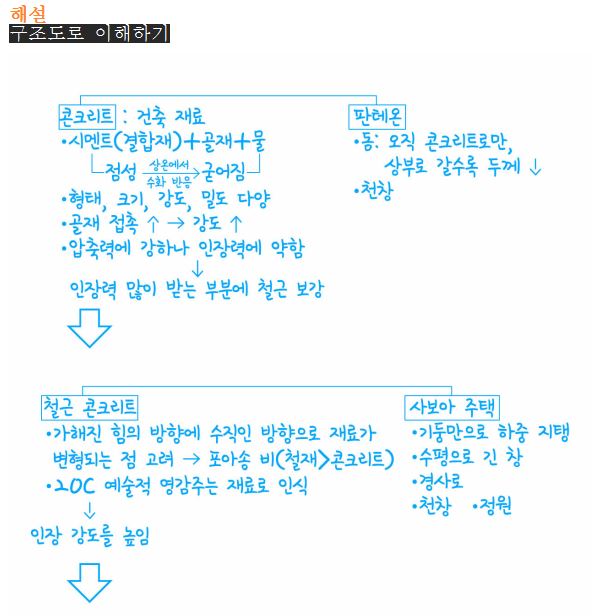 해설
구조도로 이해하기
콘크리트 : 건축 재료
•시멘트(결합재)+골재+물
점성 상온에서 수화 반응 → 굳어짐
•형태, 크기, 강도, 밀도 다양
•골재 접촉 ↑ → 강도 ↑
•압축력에 강하나 인장력에 약함
↓
인장력 많이 받는 부분에 철근 보강
판테온
•돔: 오직 콘크리트로만,
상부로 갈수록 두께 ↓
•천창
철근 콘크리트
•가해진 힘의 방향에 수직인 방향으로 재료가
변형되는 점 고려 → 포아송 비(철재>콘크리트)
•20C 예술적 영감주는 재료로 인식
↓
인장 강도를 높임
사보아 주택
•기둥만으로 하중 지탱
•수평으로 긴 창
•경사로
•천창 •정원